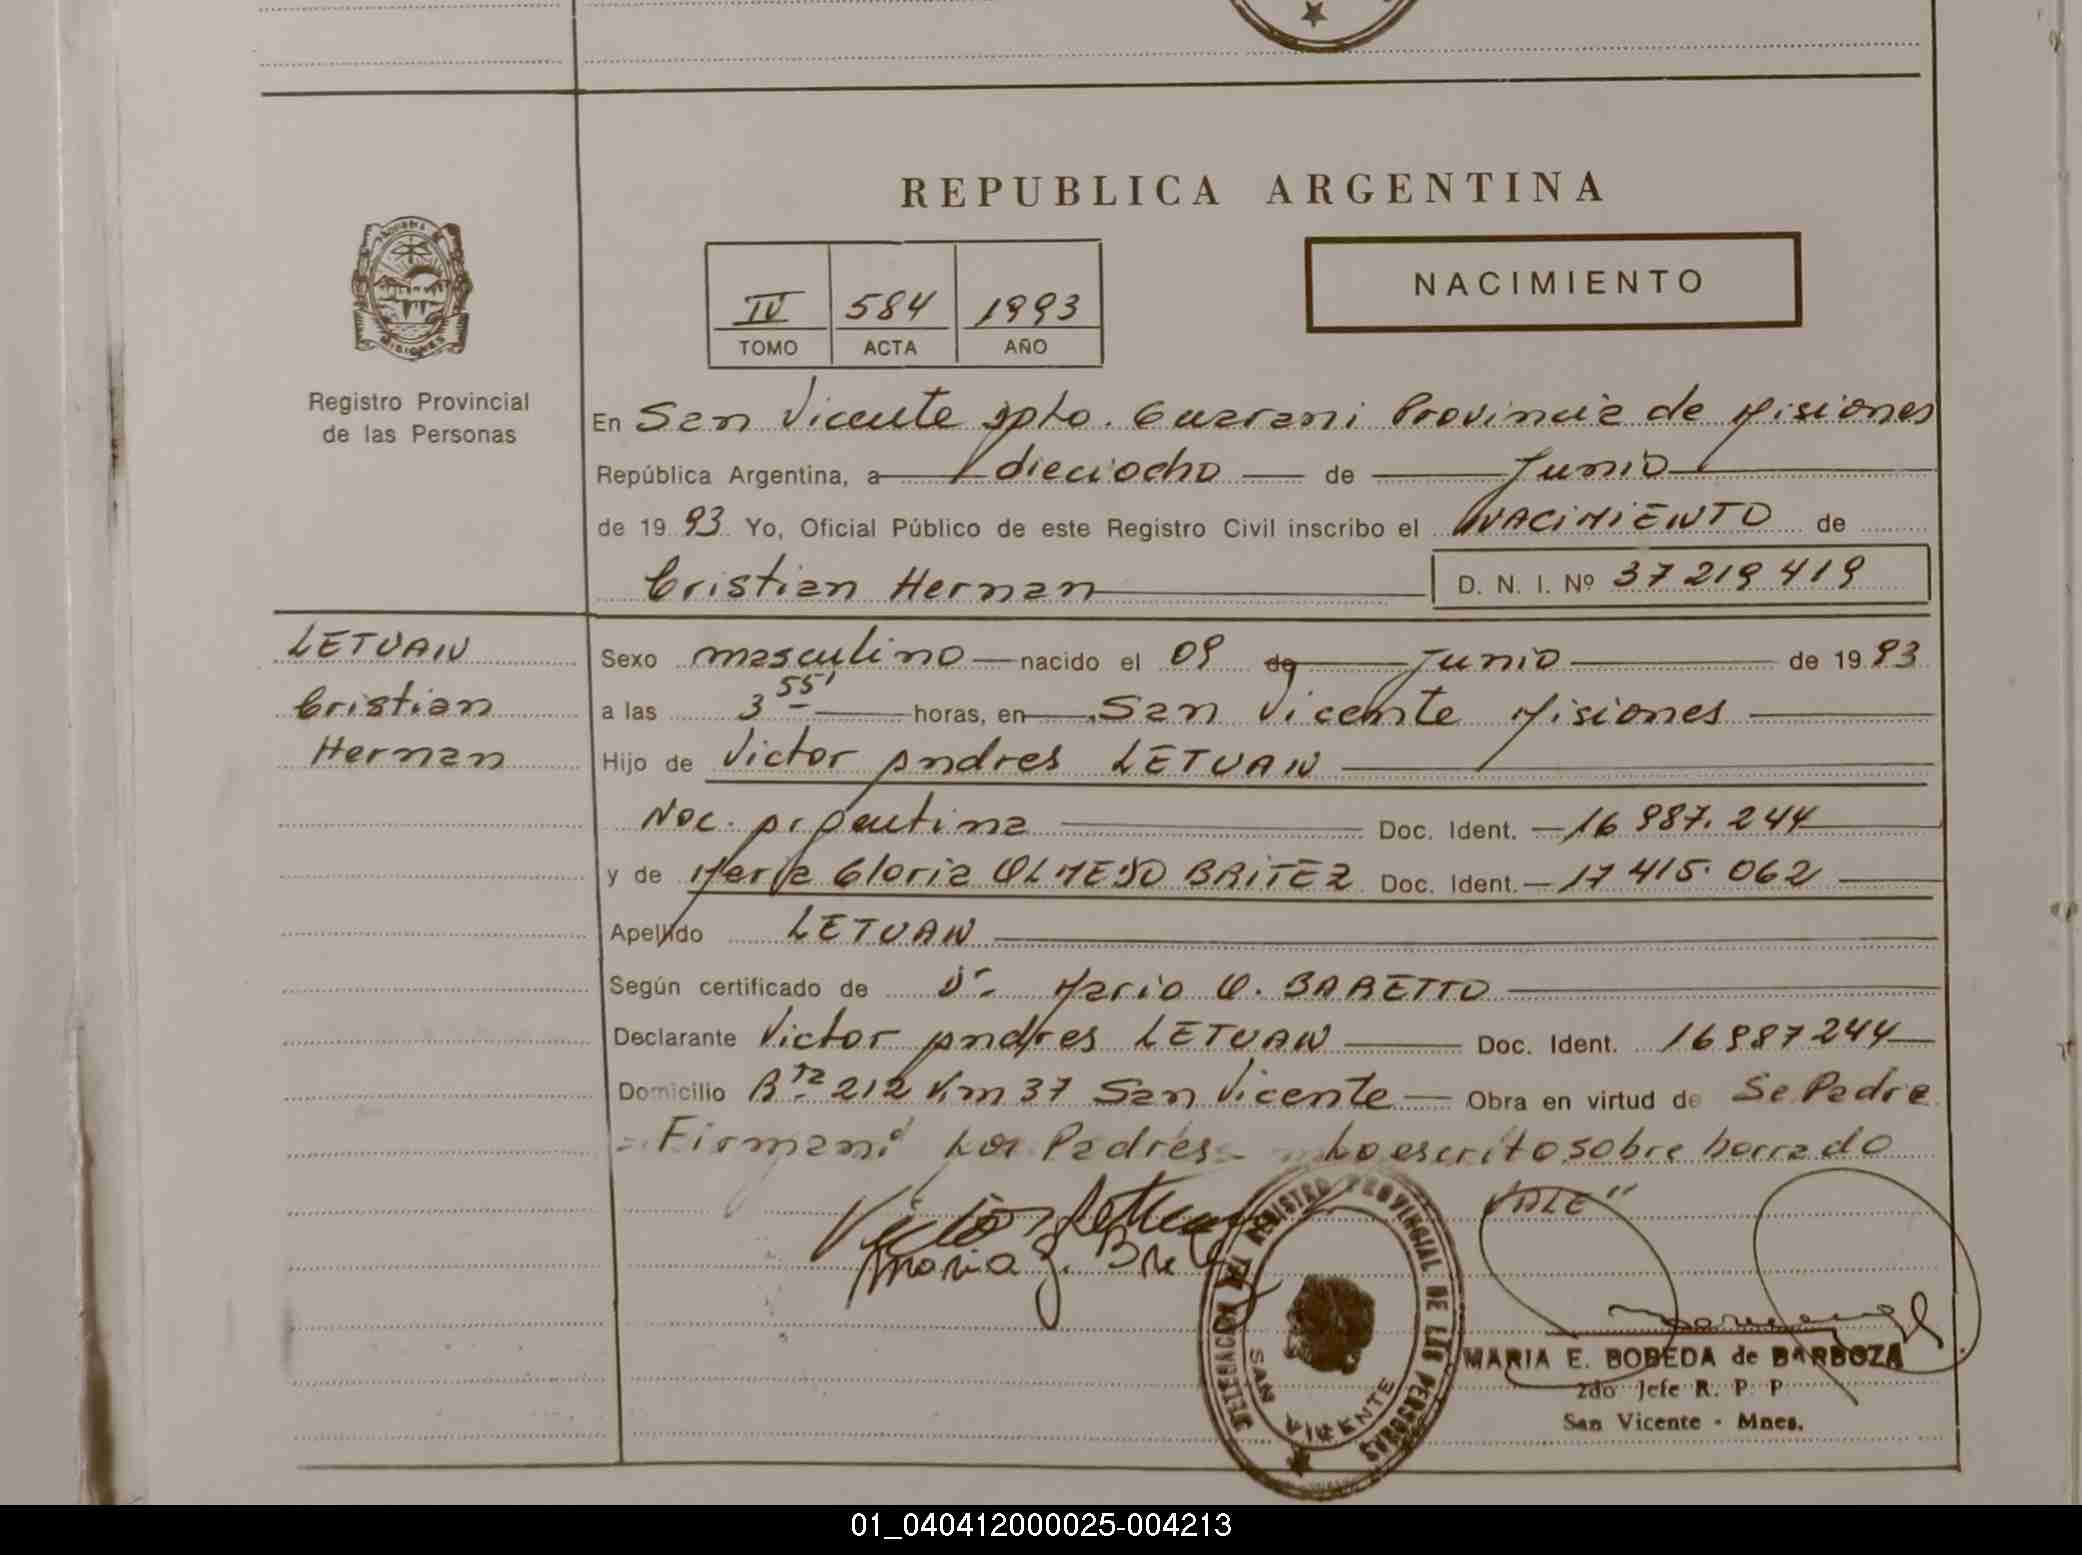 REPUBLICA ARGENTINA
NACIMIENTO
IV 584 1993
TOMO ACTA AÑO
MISIONES
Registro Provincial
de las Personas
En San Vicente Dpto. Guarani Provincia de Misiones
República Argentina, a dieciocho de Junio
de 19 93 Yo, Oficial Público de este Registro Civil inscribo el NACIMIENTO de
Cristian Hernan D. N. I. Nº 37 219 419
LETUAN
Cristian
Hernan
Sexo masculino nacido el 09 de Junio de 19 93
a las 3 55' horas, en San Vicente Misiones
Hijo de Victor Andres LETUAN
Nac. Argentina Doc. Ident. 16 987. 244
y de Maria Gloria OLMEDO BRITEZ Doc. Ident. 17 415. 062
Apellido LETUAN
Según certificado de Dr. Mario O. BARETTO
Declarante Victor Andres LETUAN Doc. Ident. 16987244
Domicilio Rta. 212 Km 37 San Vicente Obra en virtud de Se. Padre
Firman: Los Padres Lo escrito sobre borrado
VALE"
Victor Letuan
Maria G. Bri
DELEGACION DEL REGISTRO PROVINCIAL DE LAS PERSONAS
SAN VICENTE
MARIA E. BOBEDA de BARBOZA
2do Jefe R. P. P
San Vicente - Mnes.
01_040412000025-004213